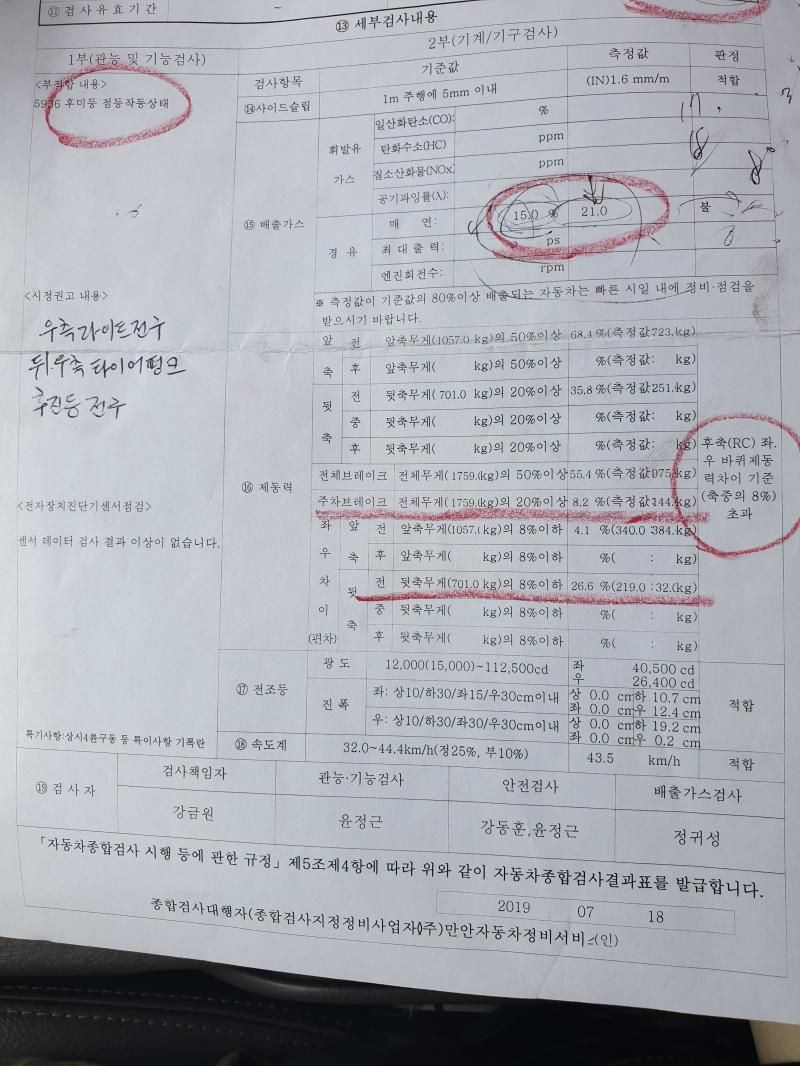 ⑪ 검사유효기간 ~
⑬ 세부검사내용
1부(관능 및 기능검사)
2부(기계/기구검사)
<부적합 내용>
5936 후미등 점등작동상태
검사항목 기준값 측정값 판정
⑭사이드슬립 1m 주행에 5mm 이내 (IN)1.6 mm/m 적합
⑮ 배출가스
휘발유 가스
일산화탄소(CO): %
탄화수소(HC) ppm
질소산화물(NOx, ppm
공기과잉률(λ):
경 유
매 연: 15.0 % 21.0 불
최 대 출 력: ps
엔진회전수: rpm
※ 측정값이 기준값의 80%이상 배출되는 자동차는 빠른 시일 내에 정비·점검을
받으시기 바랍니다.
<시정권고 내용>
우측라이트전구
뒤.우측타이어펑크
후진등 전구
<전자장치진단기센서점검>
센서 데이터 검사 결과 이상이 없습니다.
⑯ 제동력
앞 축 전 앞축무게(1057.0 kg)의 50%이상 68.4 %(측정값:723.kg)
후 앞축무게( kg)의 50%이상 %(측정값: kg)
뒷 축 전 뒷축무게( 701.0 kg)의 20%이상 35.8 %(측정값:251.kg)
중 뒷축무게( kg)의 20%이상 %(측정값: kg)
후 뒷축무게( kg)의 20%이상 %(측정값: kg)
전체브레이크 전체무게(1759.(kg)의 50%이상 55.4 %(측정값975.kg)
주차브레이크 전체무게(1759.(kg)의 20%이상 8.2 %(측정값144.kg)
좌 우 차 이 (편차)
앞 축 전 앞축무게(1057.( kg)의 8%이하 4.1 %(340.0 :384.kg)
후 앞축무게( kg)의 8%이하 %( : kg)
뒷 축 전 뒷축무게(701.0 kg)의 8%이하 26.6 %(219.0 :32.(kg)
중 뒷축무게( kg)의 8%이하 %( : kg)
후 뒷축무게( kg)의 8%이하 %( : kg)
후축(RC) 좌.
우 바퀴제동
력차이 기준
(축중의 8%)
초과
⑰ 전조등
광 도 12,000(15,000)~112,500cd 좌 40,500 cd
우 26,400 cd
진 폭 좌: 상10/하30/좌15/우30cm이내 상 0.0 cm하 10.7 cm
좌 0.0 cm우 12.4 cm
우: 상10/하30/좌30/우30cm이내 상 0.0 cm하 19.2 cm
좌 0.0 cm우 0.2 cm
적합
특기사항:상시4륜구동 등 특이사항 기록란
⑱ 속도계 32.0~44.4km/h(정25%, 부10%) 43.5 km/h 적합
⑲ 검 사 자
검사책임자 관능·기능검사 안전검사 배출가스검사
강금원 윤정근 강동훈,윤정근 정귀성
「자동차종합검사 시행 등에 관한 규정」 제5조제4항에 따라 위와 같이 자동차종합검사결과표를 발급합니다.
2019 07 18
종합검사대행자(종합검사지정정비사업자(주)만안자동차정비서비스(인)